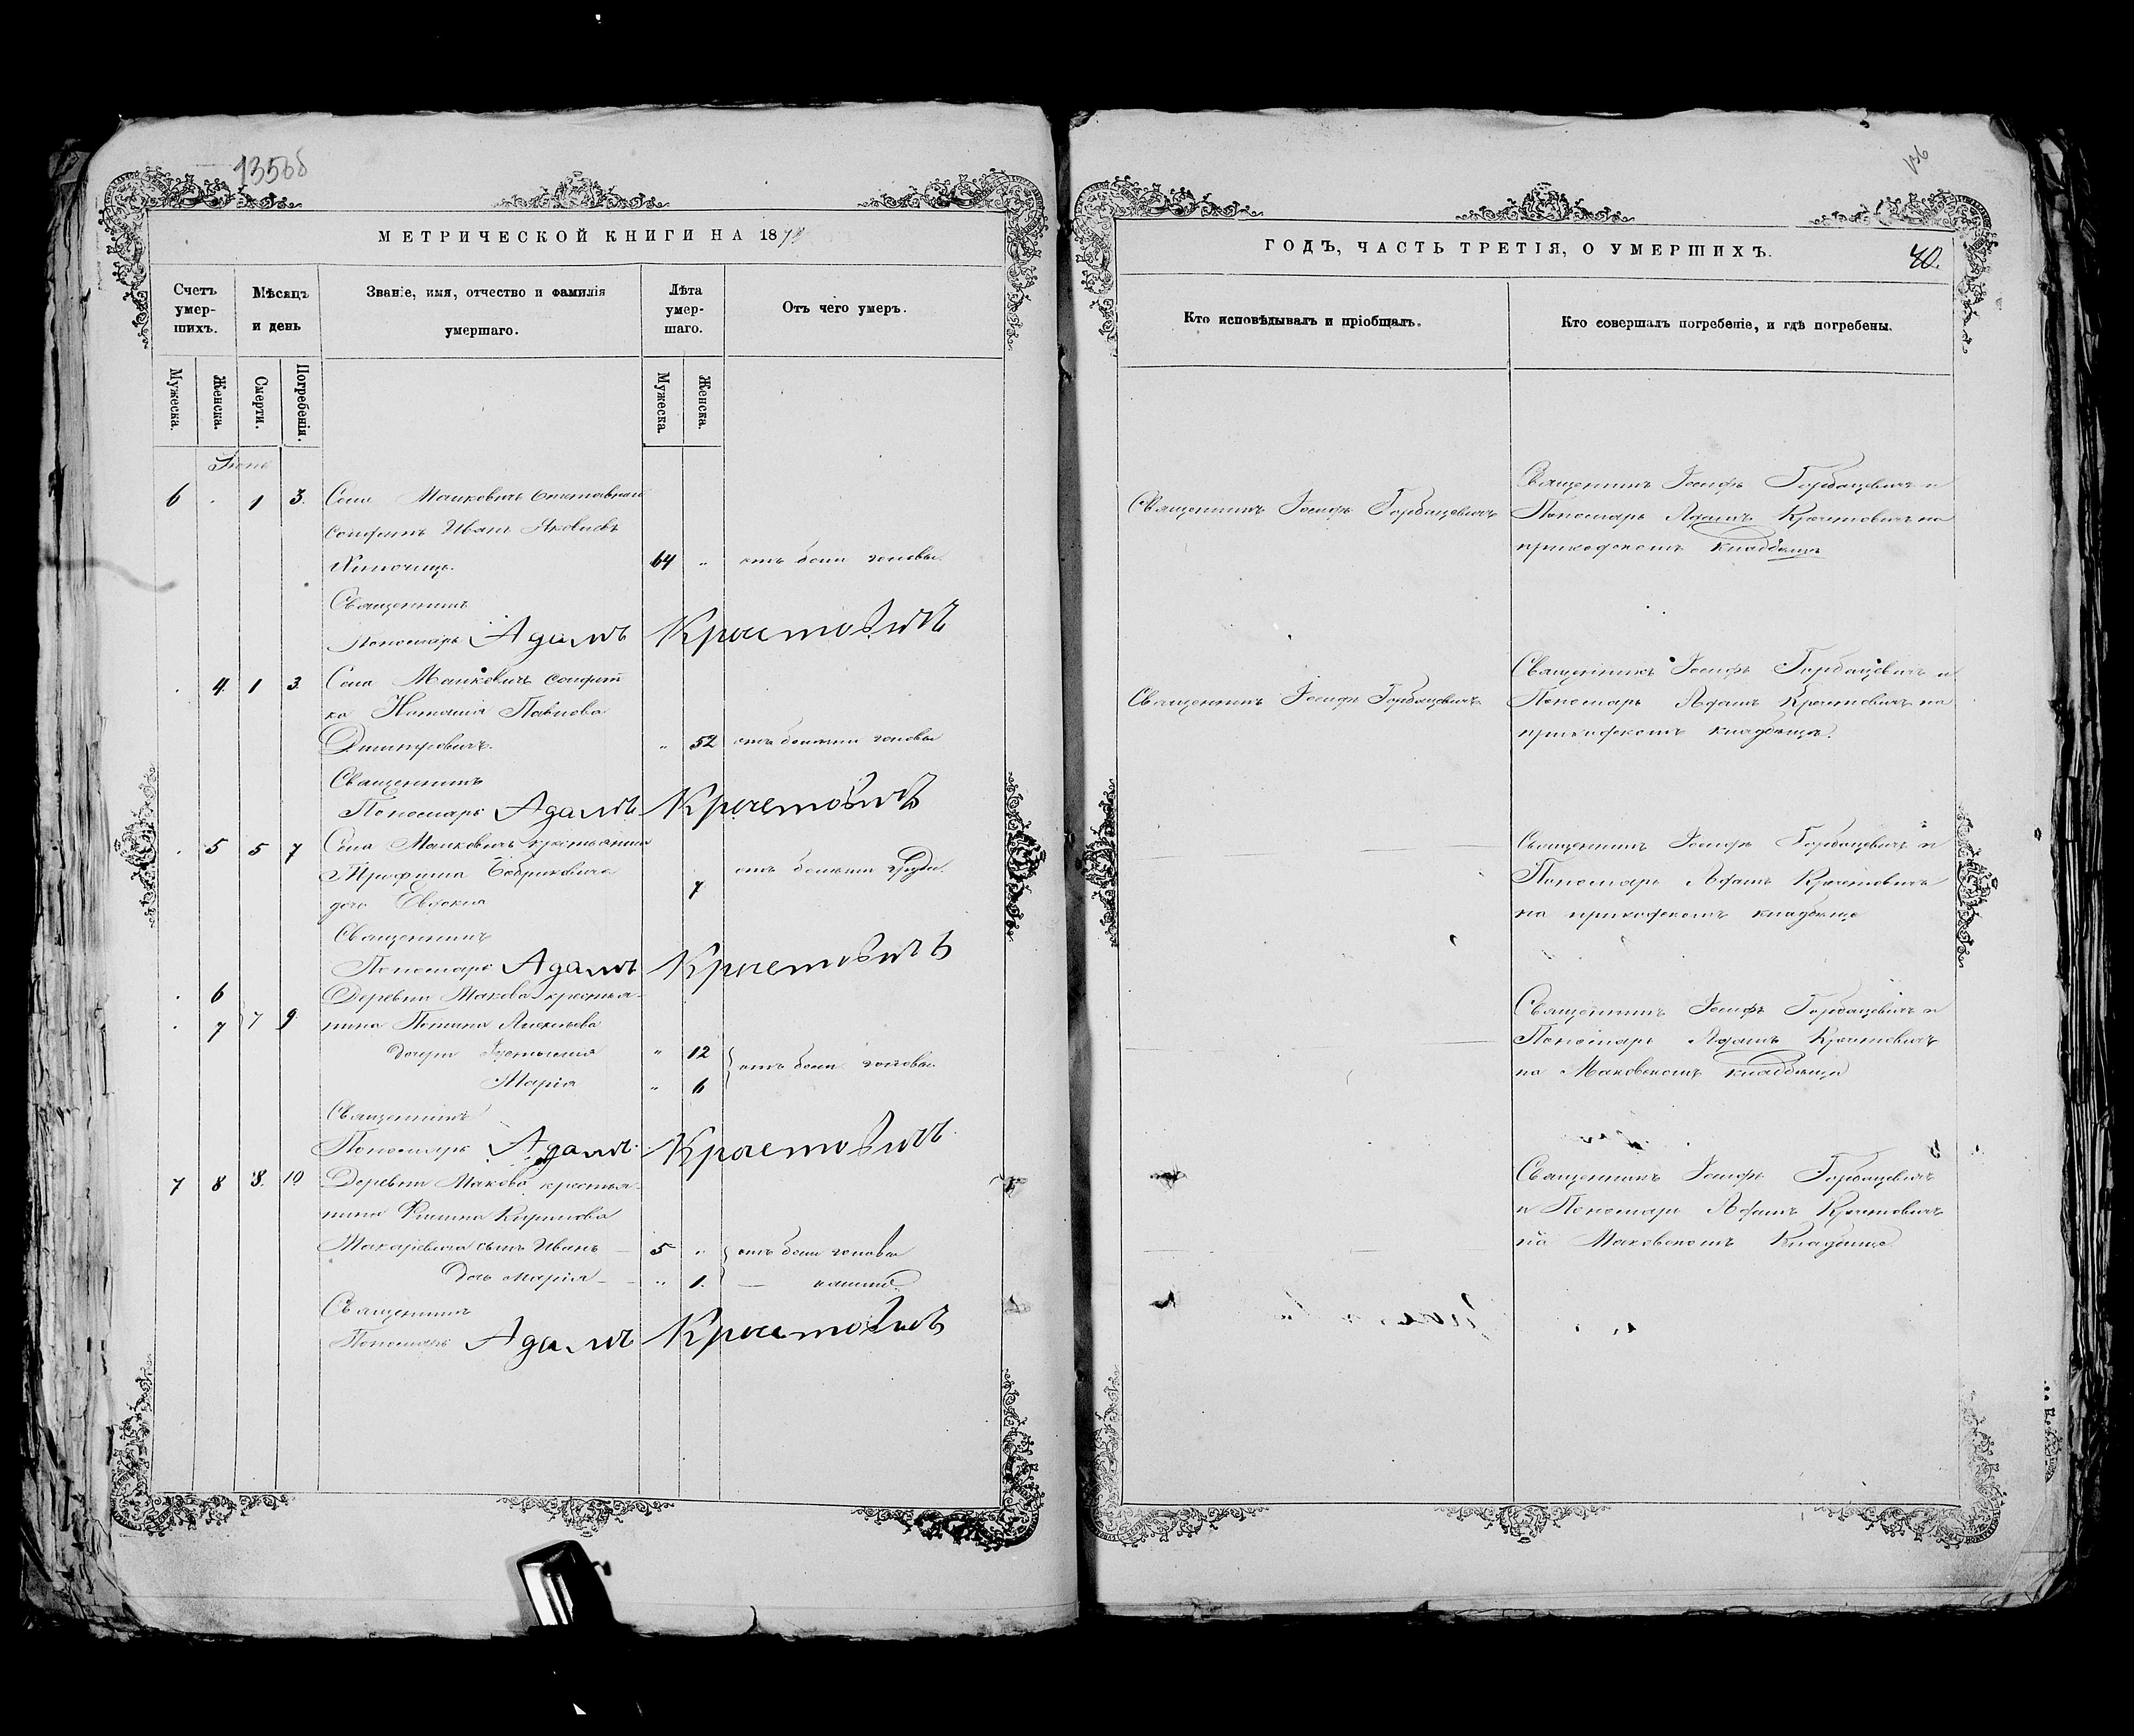 135об
МЕТРИЧЕСКОЙ КНИГИ НА 187
Счетъ умер-шихъ.
Мѣсяцъ и день
Званіе, имя, отчество и фамилія умершаго.
Лѣта умер-шаго.
Отъ чего умеръ.
Мужеска.
Женска.
Смерти.
Погребенія.
Мужеска.
Женска.
6 1 3. Села Малковичъ отставной
солдатъ Иванъ Яковлевъ
64 " отъ боли головы.
Священникъ
Пономарь Адамъ Крачтовичъ
4. 1 3. Села Малковичъ солдат
ка Наталія Павлова
Дмитровичъ. " 52 отъ болезни головы
Священникъ
Пономарь Адамъ Крачтовичъ
5 5 7 Села Малковичъ крестьянина
Трофима Бобриковича
7 отъ болезни груди.
дочь Евдокія
Священникъ
Пономарь Адамъ Крачтовичъ
6 Деревни Макова крестья-
7 7 9 нина
дочери " 12
отъ боли головы
Марія " 6
Священникъ
Пономарь Адамъ Крачтовичъ
7 8 8. 10 Деревни Макова крестья-
нина Филипа Кирилова
Макаревича сынъ Иванъ – 5 " отъ боли головы
дочь Марія – " 1. —
Священникъ
Пономарь Адамъ Крачтовичъ
136
ГОДЪ, ЧАСТЬ ТРЕТІЯ, О УМЕРШИХЪ.
40.
Кто исповѣдывалъ и пріобщалъ.
Кто совершалъ погребеніе, и гдѣ погребены.
Священникъ Іосифъ Горбацевичъ
Священникъ Іосифъ Горбацевичъ и
Пономарь Адамъ Крачтовичъ на
приходскомъ кладбищѣ
Священникъ Іосифъ Горбацевичъ
Священникъ Іосифъ Горбацевичъ и
Пономарь Адамъ Крачтовичъ на
приходскомъ кладбищѣ.
Священникъ Іосифъ Горбацевичъ и
Пономарь Адамъ Крачтовичъ
на приходскомъ кладбище
Священникъ Іосифъ Горбацевичъ и
Пономарь Адамъ Крачтовичъ
на Маковскомъ кладбище
Священникъ Іосифъ Горбацевичъ
и Пономарь Адамъ Крачтовичъ
на Маковскомъ Кладбище